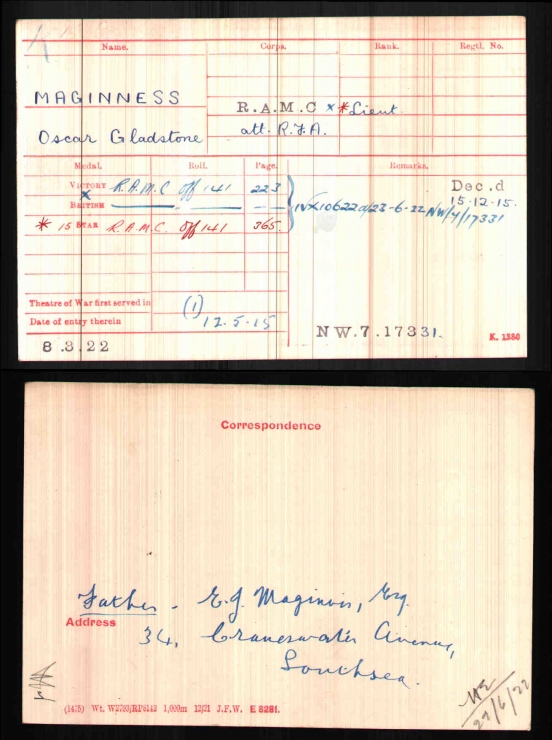 Name. Corps. Rank. Regtl. No.
MAGINNESS
R.A.M.C × * Lieut.
Oscar Gladstone att. R.F.A.
Medal. Roll. Page. Remarks.
VICTORY R.A.M.C Off 141 223 Dec.d
× 15.12.15.
BRITISH — " — — " — IVX10622 d/23-6-22 NW/7/17331
* 15 STAR R.A.M.C. Off 141 365.
Theatre of War first served in (1)
Date of entry therein 12.5.15
NW.7.17331. K. 1380
8.3.22
Correspondence
Father - E.J. Maginnis, Esq.
Address
34, Craneswater Avenue,
Southsea.
(1475) Wt. W2789/RP6142 1,000m 12/21 J.F.W. E 8281.
22/6/22